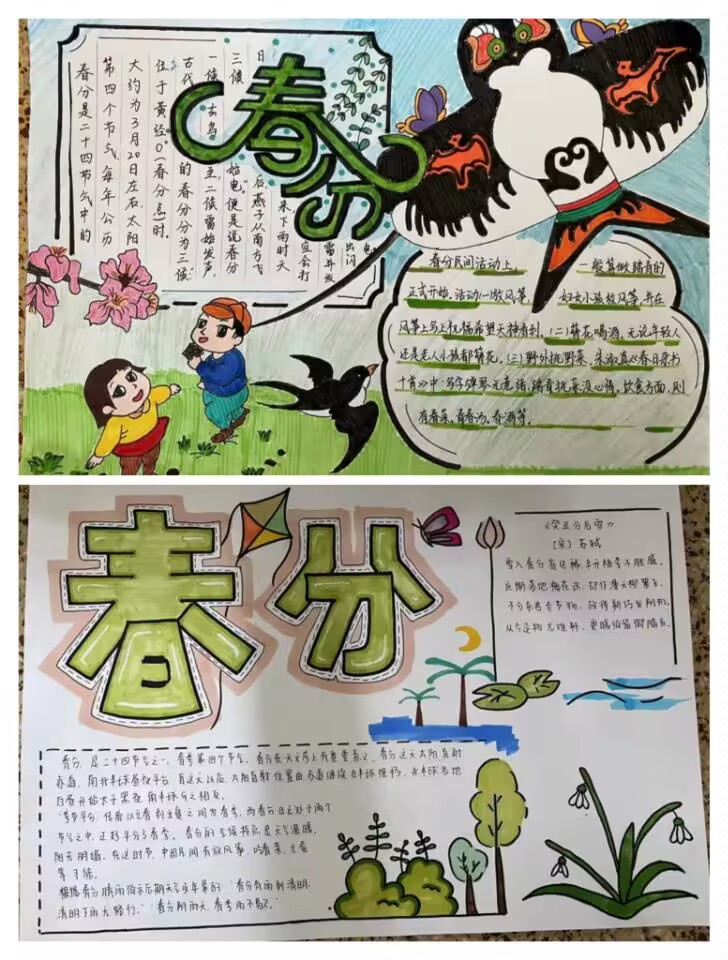 春分
春分是二十四节气中的
第四个节气,每年公历
大约为3月20日左右,太阳
位于黄经0°(春分点)时.
古代的春分分为三候:
一候玄鸟至,二候雷始发声,
三候始电,"便是说春分
日后燕子从南方飞
来下雨时天
空会打
雷并发
出闪
电
春分民间活动上, 一般算做踏青的
正式开始.活动(一)放风筝, 妇女小孩放风筝,并在
风筝上写上祝福希望天神看到,(二)簪花喝酒,无论年轻人
还是老人小孩都簪花。(三)野外挑野菜,朱淑真《春日杂书
十首》中:写字弹琴无意绪,踏青挑菜没心情。饮食方面,则
有春菜、春汤、春酒等。
春分
《癸丑春分后雪》
[宋] 苏轼
雪入春分省见稀,半开桃李不胜威。
应惭落地梅花识,却作漫天柳絮飞。
不分东君专节物,故将新巧发阴机。
从今造物尤难料,更暖须留御腊衣。
春分,是二十四节气之一,春季第四个节气。春分在天文学上有重要意义,春分这天太阳直射
赤道,南北半球昼夜平分,自这天以后,太阳直射位置由赤道继续北半球推移,北半球各地
白昼开始大于黑夜,南半球与之相反。
季节平分,传统以立春到立夏之间为春季,而春分日正处于两个
节气之中,正好平分了春季。春分的气候特点是天气温暖,
阳光明媚。在这时节,中国民间有放风筝、吃春菜、立蛋
等习俗。
根据春分晴雨预示后期天气与年景的:"春分有雨到清明,
清明下雨无路行。""春分阴雨天,春季雨不歇"。